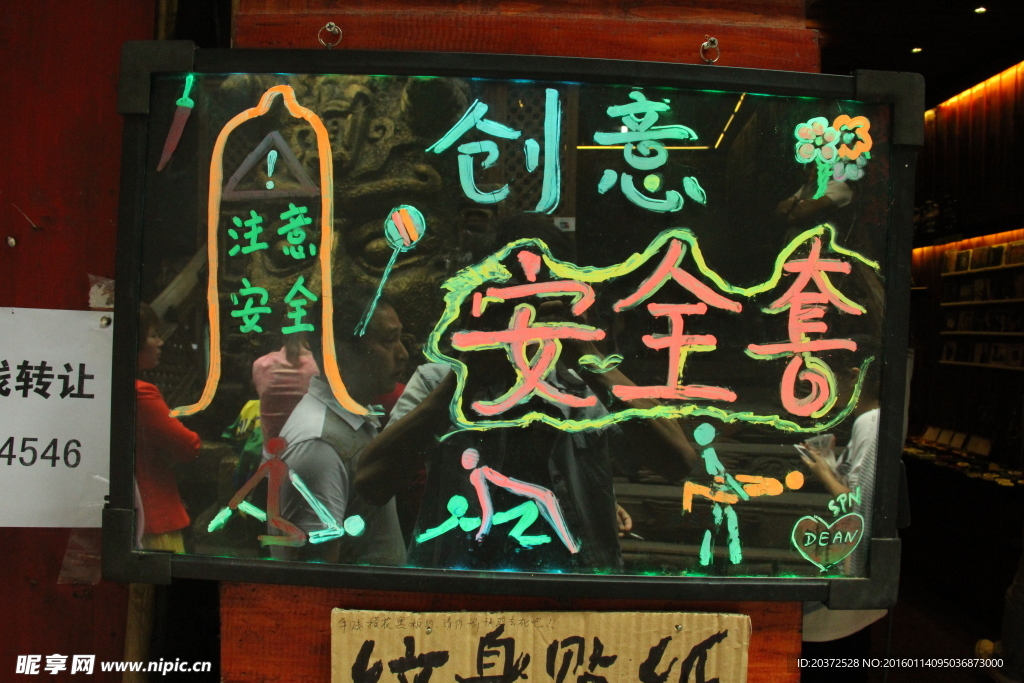 创意
注意
安全
安全套
SPN
DEAN
转让
4546
纹身贴纸
昵享网 www.nipic.cn
ID:20372528 NO:20160114095036873000